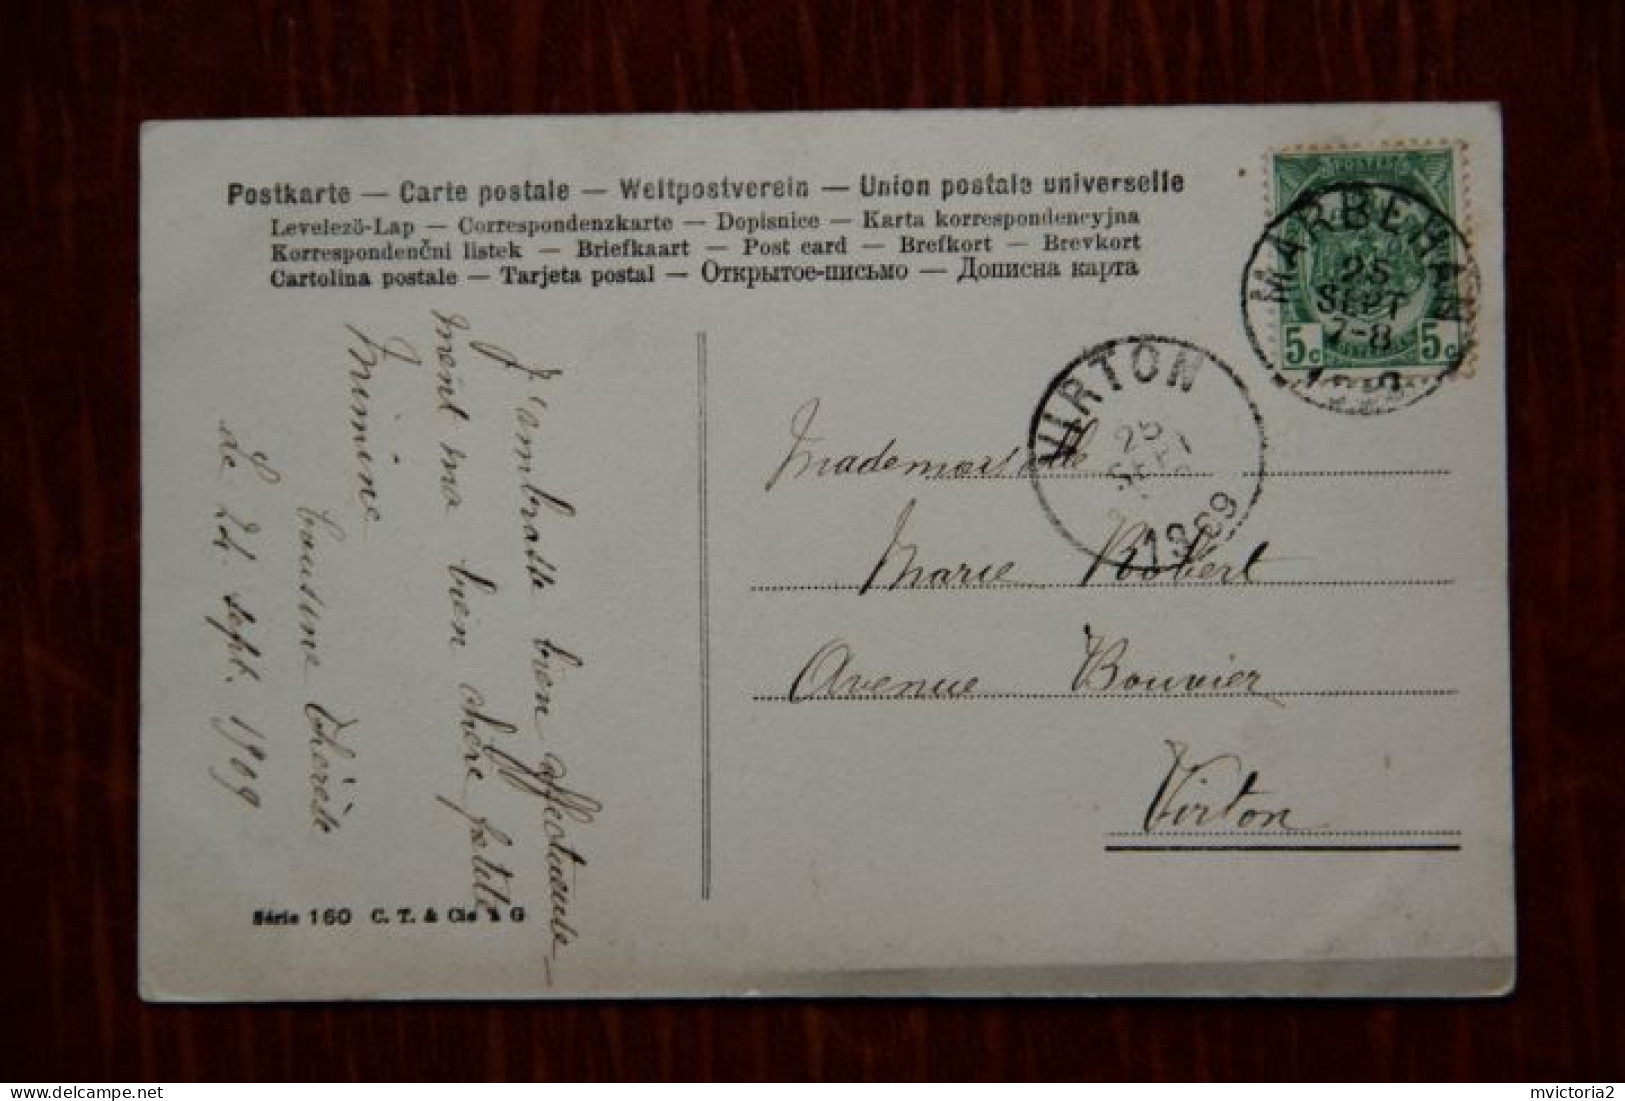 Postkarte — Carte postale — Weltpostverein — Union postale universelle
Levelező-Lap — Correspondenzkarte — Dopisnice — Karta korrespondencyjna
Korrespondenčni listek — Briefkaart — Post card — Brefkort — Brevkort
Cartolina postale — Tarjeta postal — Открытое-письмо — Дописна карта
POSTES
5c 5c
MARBEHAN
25
SEPT
7-8
VIRTON
25
SEPT
1909
Mademoiselle
Marie Robert
Avenue Bouvier
Virton
J'embrasse bien affectueuse-
ment ma bien chère petite
Mimine
Cousine Thérèse
Le 24 sept. 1909
Série 160 C. T. & Cie à G
mvictoria2